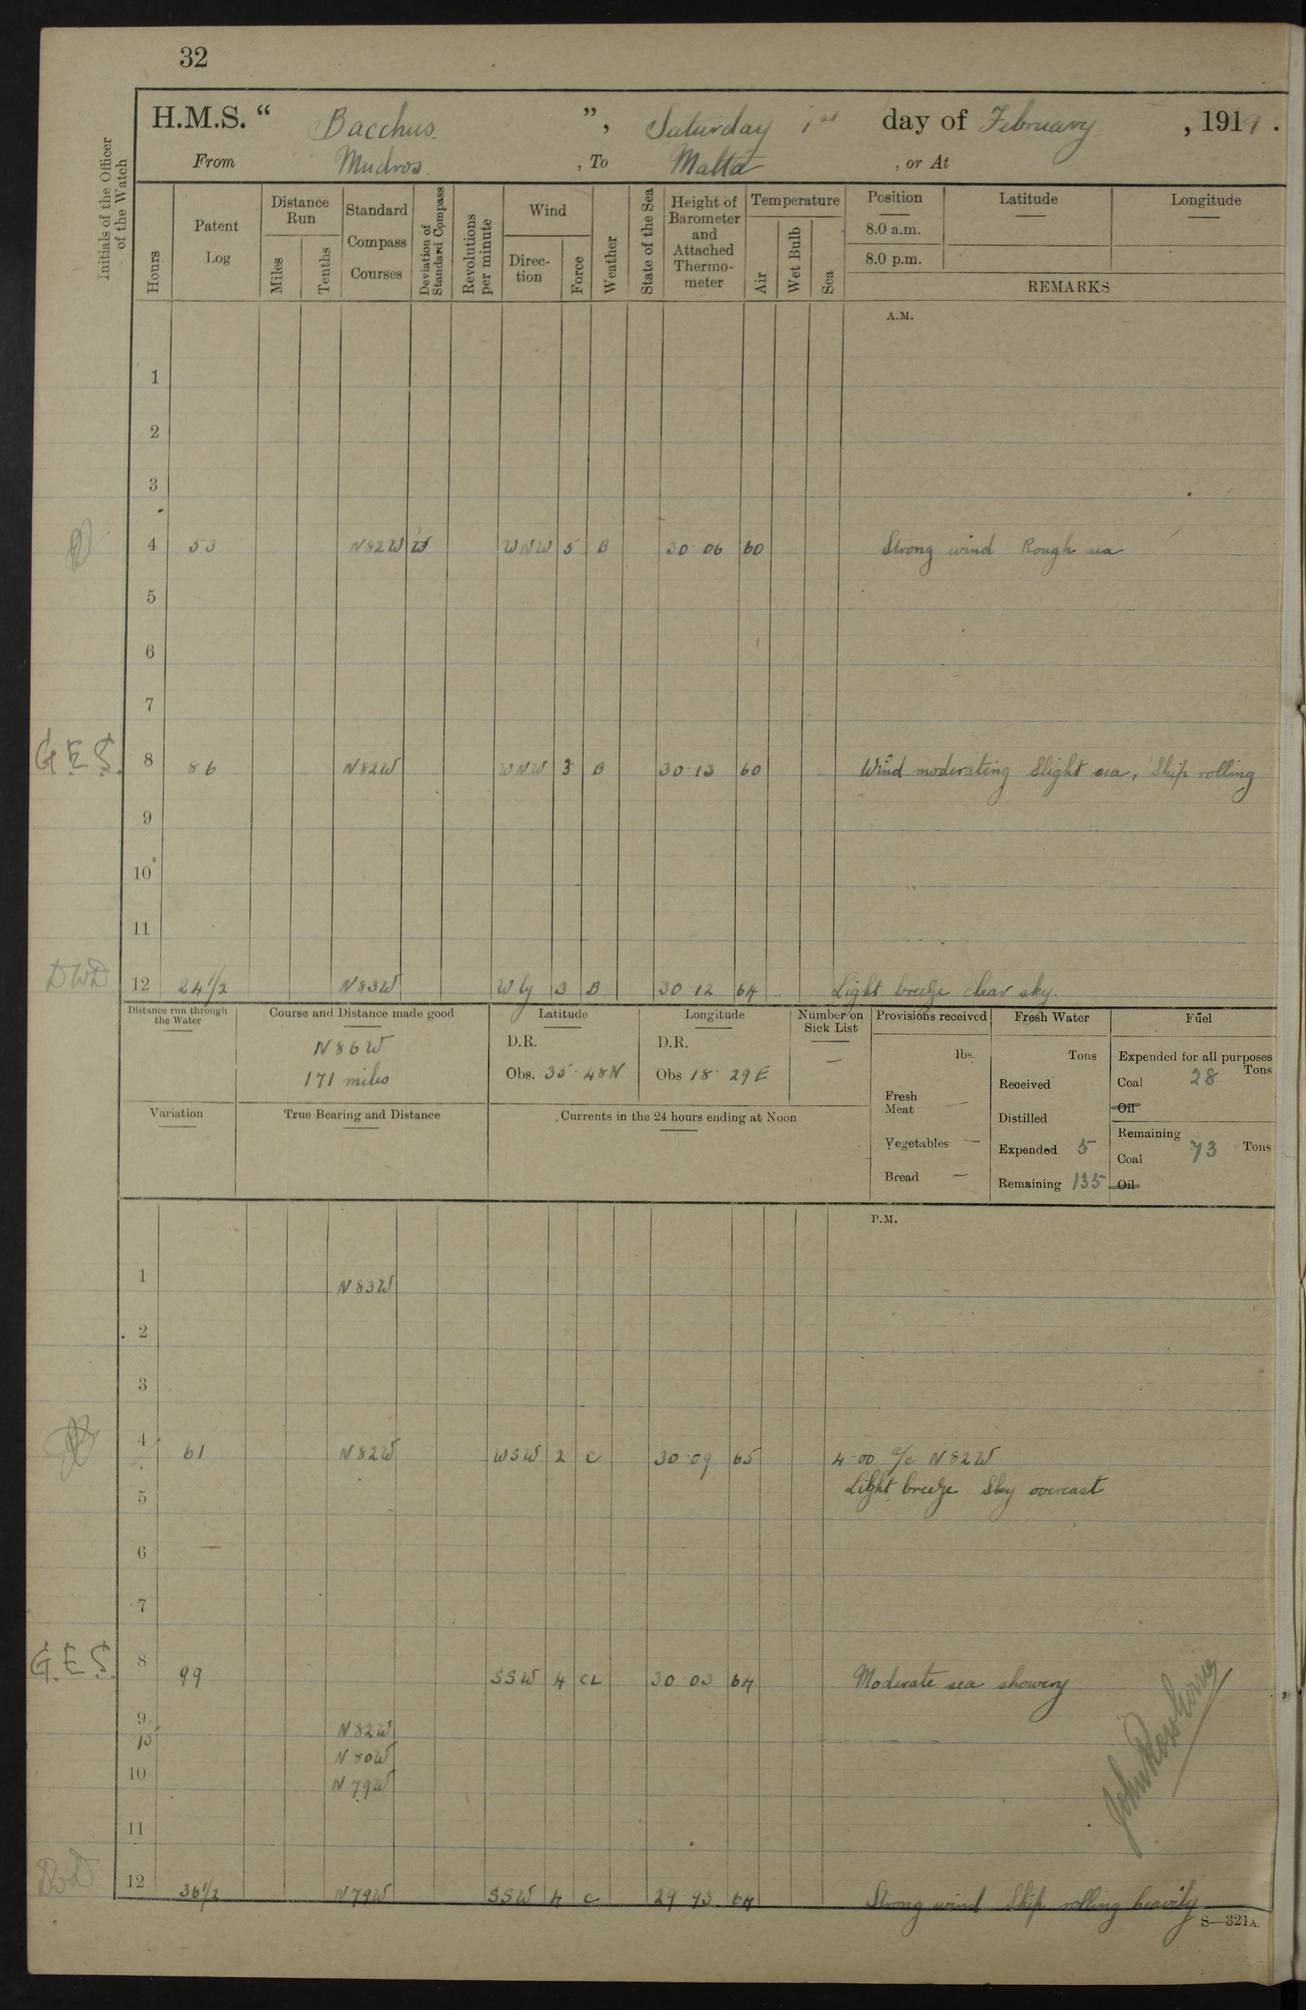 32
H.M.S. “ Bacchus ”, Saturday 1st day of February, 1919.
From Mudros, To Malta, or At
Initials of the Officer of the Watch
Hours
Patent Log
Distance Run
Miles
Tenths
Standard Compass Courses
Deviation of Standard Compass
Revolutions per minute
Wind
Direction
Force
Weather
State of the Sea
Height of Barometer and Attached Thermometer
Temperature
Air
Wet Bulb
Sea
Position Latitude Longitude
8.0 a.m.
8.0 p.m.
REMARKS
A.M.
1
2
3
4 53 N82W W WNW 5 B 30·06 60 Strong wind Rough sea
5
6
7
G.E.S. 8 86 N82W WNW 3 B 30·13 60 Wind moderating Slight sea, Ship rolling
9
10
11
DWD 12 24 1/2 N83W Wly 3 B 30·12 64 Light breeze clear sky.
Distance run through the Water
Course and Distance made good
N86W
171 miles
Latitude
D.R.
Obs. 35·48N
Longitude
D.R.
Obs 18·29E
Number on Sick List
—
Provisions received
lbs.
Fresh Meat —
Vegetables —
Bread —
Fresh Water
Tons
Received
Distilled
Expended 5
Remaining 135
Fuel
Expended for all purposes
Tons
Coal 28
Oil
Remaining
Coal 73 Tons
Oil
Variation
True Bearing and Distance
Currents in the 24 hours ending at Noon
P.M.
1 N83W
2
3
4 61 N82W WSW 2 C 30·09 65 4·00 a/c N82W
Light breeze Sky overcast
5
6
7
G.E.S. 8 99 SSW 4 CL 30·03 64 Moderate sea showery
9 N82W
15 N80W
10 N79W
11
DWD 12 36 1/2 N79W SSW 4 C 29·93 64 Strong wind Ship rolling heavily
S—321A.